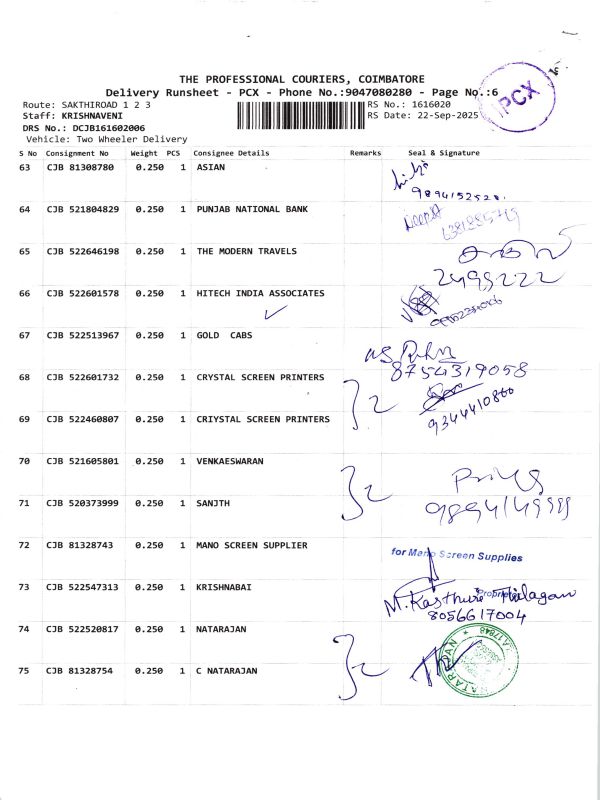 THE PROFESSIONAL COURIERS, COIMBATORE
Delivery Runsheet - PCX - Phone No.:9047080280 - Page No.:6
PCX
Route: SAKTHIROAD 1 2 3
RS No.: 1616020
Staff: KRISHNAVENI
RS Date: 22-Sep-2025
DRS No.: DCJB161602006
Vehicle: Two Wheeler Delivery
S No Consignment No Weight PCS Consignee Details Remarks Seal & Signature
63 CJB 81308780 0.250 1 ASIAN
9894152528.
64 CJB 521804829 0.250 1 PUNJAB NATIONAL BANK
Deepa
65 CJB 522646198 0.250 1 THE MODERN TRAVELS
2499222
66 CJB 522601578 0.250 1 HITECH INDIA ASSOCIATES
67 CJB 522513967 0.250 1 GOLD CABS
8754319058
68 CJB 522601732 0.250 1 CRYSTAL SCREEN PRINTERS
2
9344410866
69 CJB 522460807 0.250 1 CRIYSTAL SCREEN PRINTERS
70 CJB 521605801 0.250 1 VENKAESWARAN
2
71 CJB 520373999 0.250 1 SANJTH
9894149999
72 CJB 81328743 0.250 1 MANO SCREEN SUPPLIER
for Mano Screen Supplies
73 CJB 522547313 0.250 1 KRISHNABAI
Proprietor
M. Kasthuri Thilagam
8056617004
74 CJB 522520817 0.250 1 NATARAJAN
2
75 CJB 81328754 0.250 1 C NATARAJAN
NATARAJAN